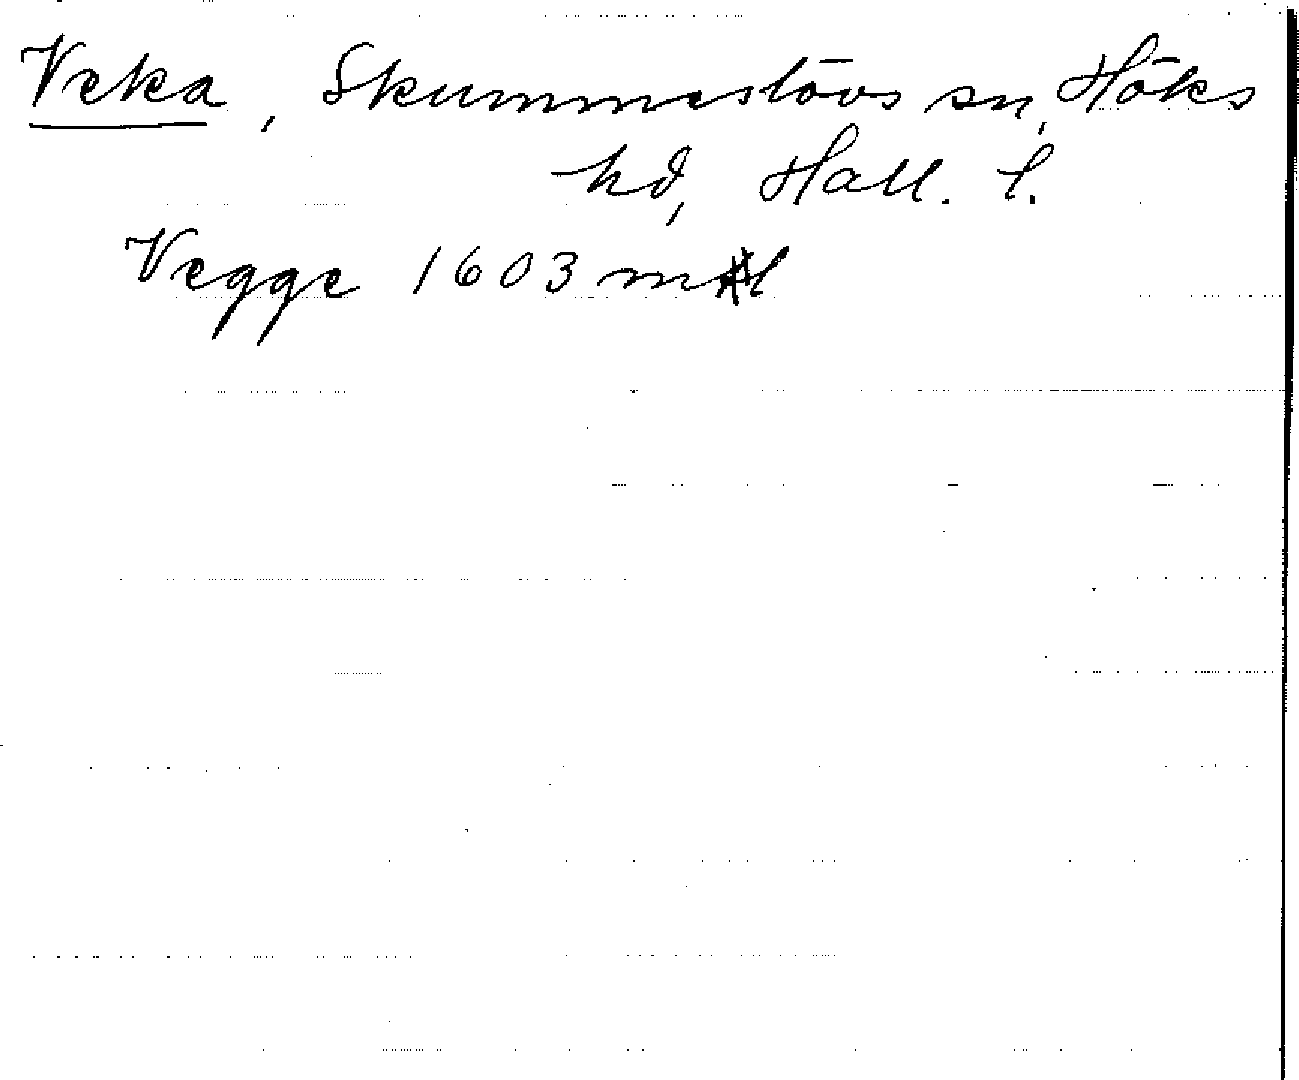 Veka, Skummeslövs sn, Höks
hd, Hall. l.
Vegge 1603 ml